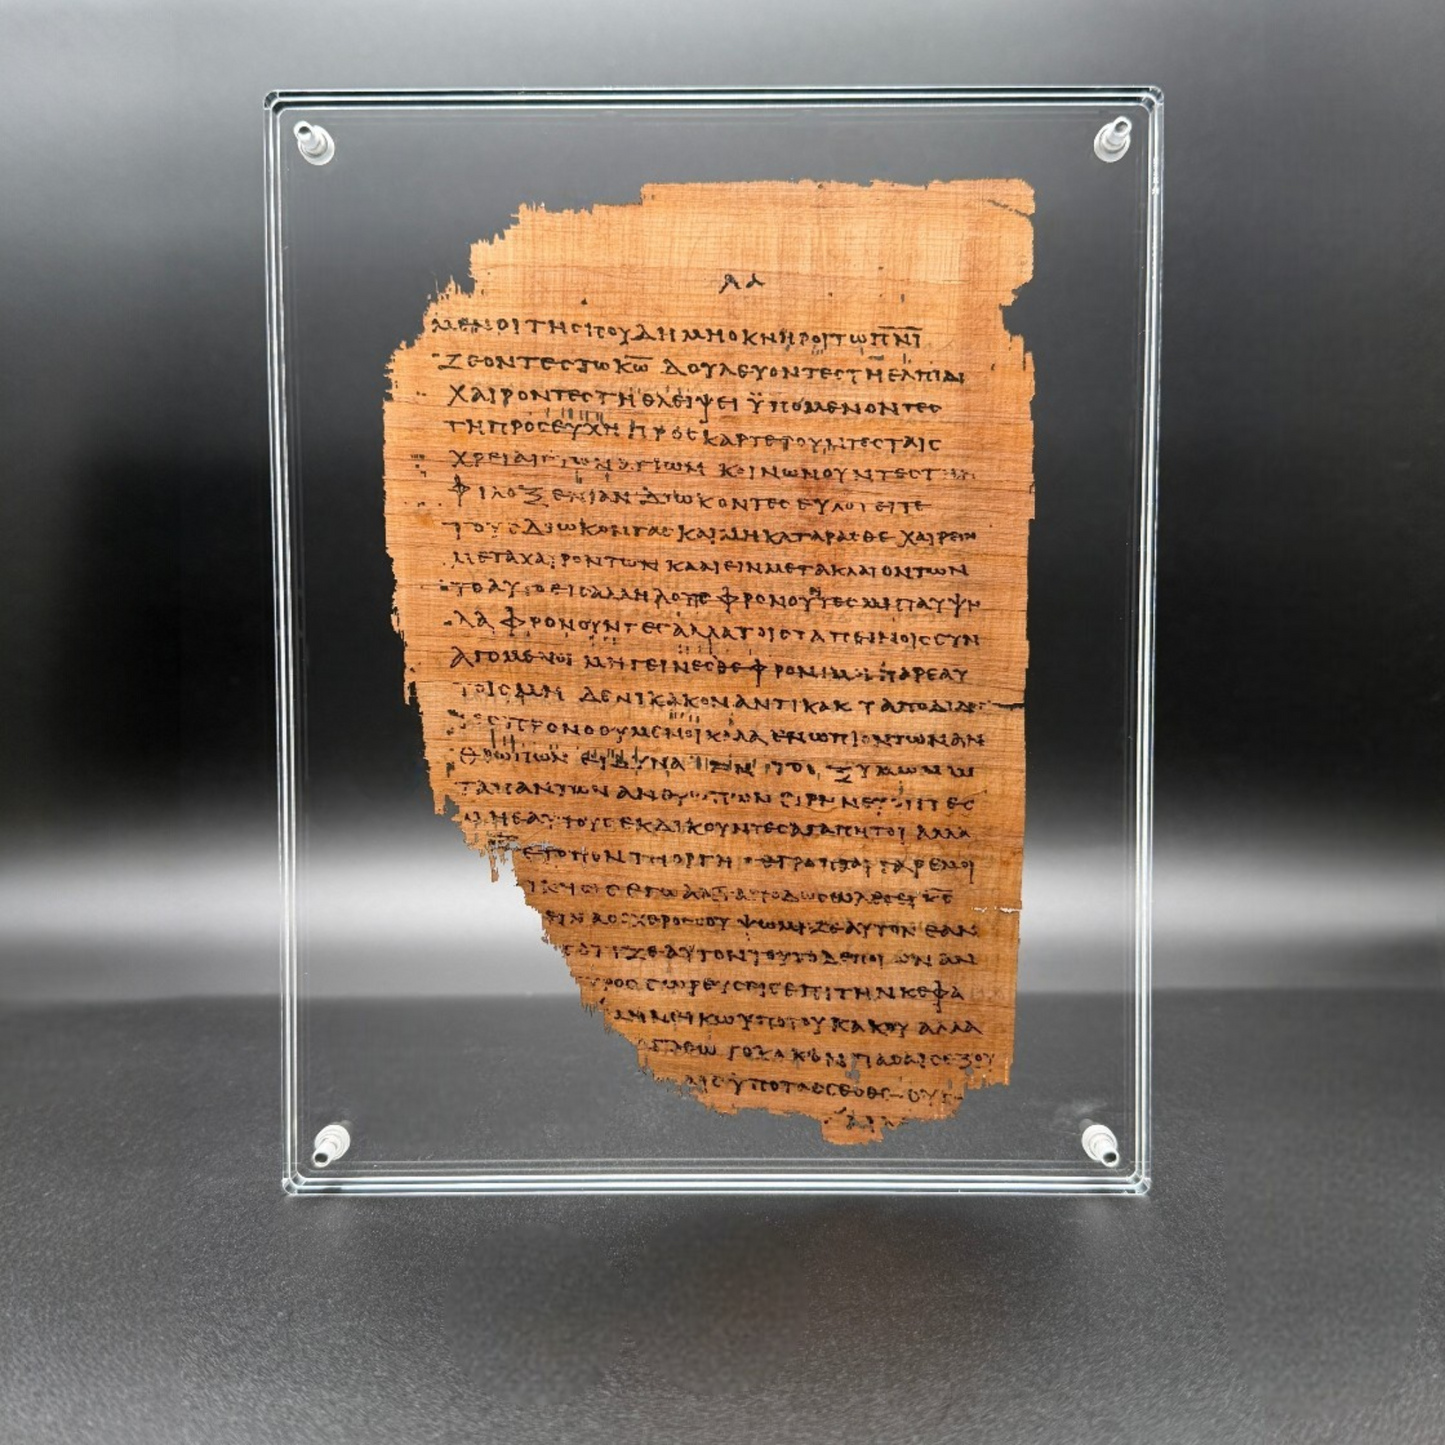 ΛΑ
ΜΕΝΟΙ ΤΗ ΣΠΟΥΔΗ ΜΗ ΟΚΝΗΡΟΙ ΤΩ Π̅Ν̅Ι̅
ΖΕΟΝΤΕΣ ΤΩ Κ̅Ω̅ ΔΟΥΛΕΥΟΝΤΕΣ ΤΗ ΕΛΠΙΔΙ
ΧΑΙΡΟΝΤΕΣ ΤΗ ΘΛΕΙΨΕΙ ΫΠΟΜΕΝΟΝΤΕΣ
ΤΗ ΠΡΟΣΕΥΧΗ ΠΡΟΣΚΑΡΤΕΡΟΥΝΤΕΣ ΤΑΙΣ
ΧΡΕΙΑΙΣ ΤΩΝ ΑΓΙΩΝ ΚΟΙΝΩΝΟΥΝΤΕΣ ΤΗΝ
ΦΙΛΟΞΕΝΙΑΝ ΔΙΩΚΟΝΤΕΣ ΕΥΛΟΓΕΙΤΕ
ΤΟΥΣ ΔΙΩΚΟΝΤΑΣ ΚΑΙ ΜΗ ΚΑΤΑΡΑΣΘΕ ΧΑΙΡΕΙΝ
ΜΕΤΑ ΧΑΙΡΟΝΤΩΝ ΚΛΑΙΕΙΝ ΜΕΤΑ ΚΛΑΙΟΝΤΩΝ
ΤΟ ΑΥΤΟ ΕΙΣ ΑΛΛΗΛΟΥΣ ΦΡΟΝΟΥΝΤΕΣ ΜΗ ΤΑ ΥΨΗ
ΛΑ ΦΡΟΝΟΥΝΤΕΣ ΑΛΛΑ ΤΟΙΣ ΤΑΠΕΙΝΟΙΣ ΣΥΝ
ΑΓΟΜΕΝΟΙ ΜΗ ΓΕΙΝΕΣΘΕ ΦΡΟΝΙΜΟΙ ΠΑΡ ΕΑΥ
ΤΟΙΣ ΜΗΔΕΝΙ ΚΑΚΟΝ ΑΝΤΙ ΚΑΚΟΥ ΑΠΟΔΙΔΟ
ΤΕΣ ΠΡΟΝΟΟΥΜΕΝΟΙ ΚΑΛΑ ΕΝΩΠΙΟΝ ΤΩΝ ΑΝ
ΘΡΩΠΩΝ ΕΙ ΔΥΝΑΤΟΝ ΤΟ ΕΞ ΥΜΩΝ ΜΕ
ΤΑ ΠΑΝΤΩΝ ΑΝΘΡΩΠΩΝ ΕΙΡΗΝΕΥΟΝΤΕΣ
ΜΗ ΕΑΥΤΟΥΣ ΕΚΔΙΚΟΥΝΤΕΣ ΑΓΑΠΗΤΟΙ ΑΛΛΑ
ΔΟΤΕ ΤΟΠΟΝ ΤΗ ΟΡΓΗ ΓΕΓΡΑΠΤΑΙ ΓΑΡ ΕΜΟΙ
ΙΚΗΣΙΣ ΕΓΩ ΑΝΤΑΠΟΔΩΣΩ ΛΕΓΕΙ Κ̅Σ̅
ΕΙΝΑ Ο ΕΧΘΡΟΣ ΣΟΥ ΨΩΜΙΖΕ ΑΥΤΟΝ ΕΑΝ
ΠΟΤΙΖΕ ΑΥΤΟΝ ΤΟΥΤΟ ΔΕ ΠΟΙΩΝ ΑΝ
ΥΡΟΣ ΣΩΡΕΥΣΕΙΣ ΕΠΙ ΤΗΝ ΚΕΦΑ
ΜΗ ΝΕΙΚΩ ΥΠΟ ΤΟΥ ΚΑΚΟΥ ΑΛΛΑ
ΑΓΑΘΩ ΤΟ ΚΑΚΟΝ ΠΑΣΑΙΣ ΕΞΟΥ
ΑΙΣ ΫΠΟΤΑΣΣΕΣΘΕ ΟΥ Γ